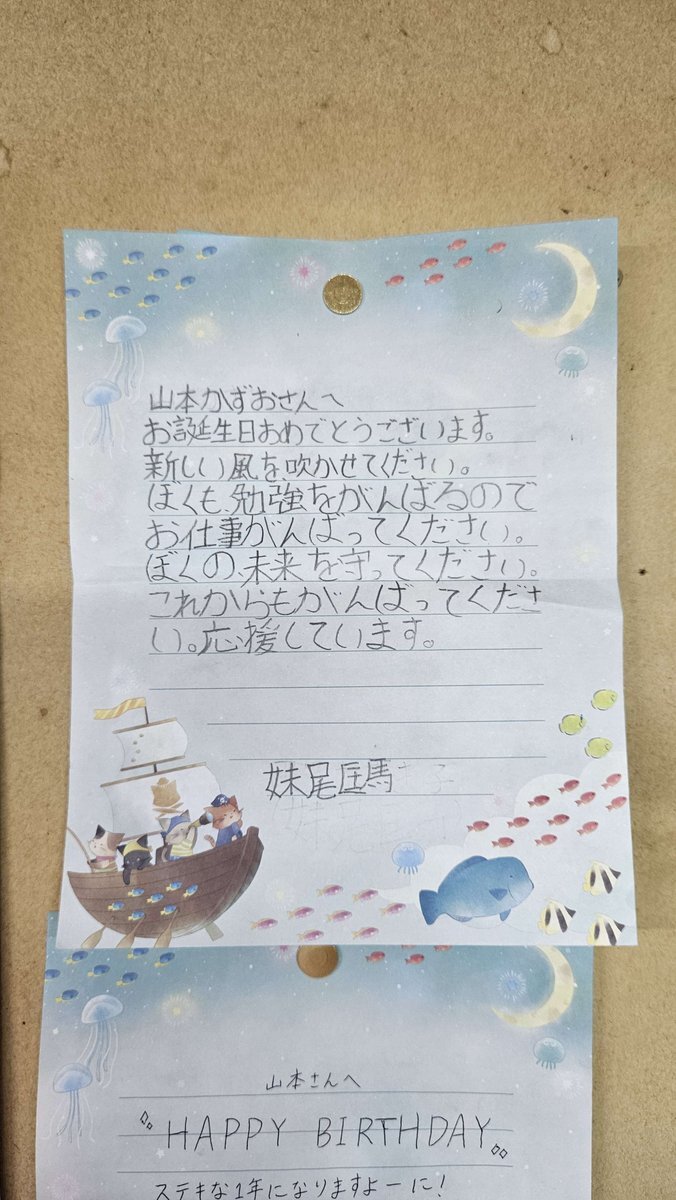 山本かずおさんへ
お誕生日おめでとうございます。
新しい風を吹かせてください。
ぼくも勉強をがんばるので
お仕事がんばってください。
ぼくの未来を守ってください。
これからもがんばってくださ
い。応援しています。
妹尾匡馬
山本さんへ
HAPPY BIRTHDAY
ステキな1年になりますよーに!